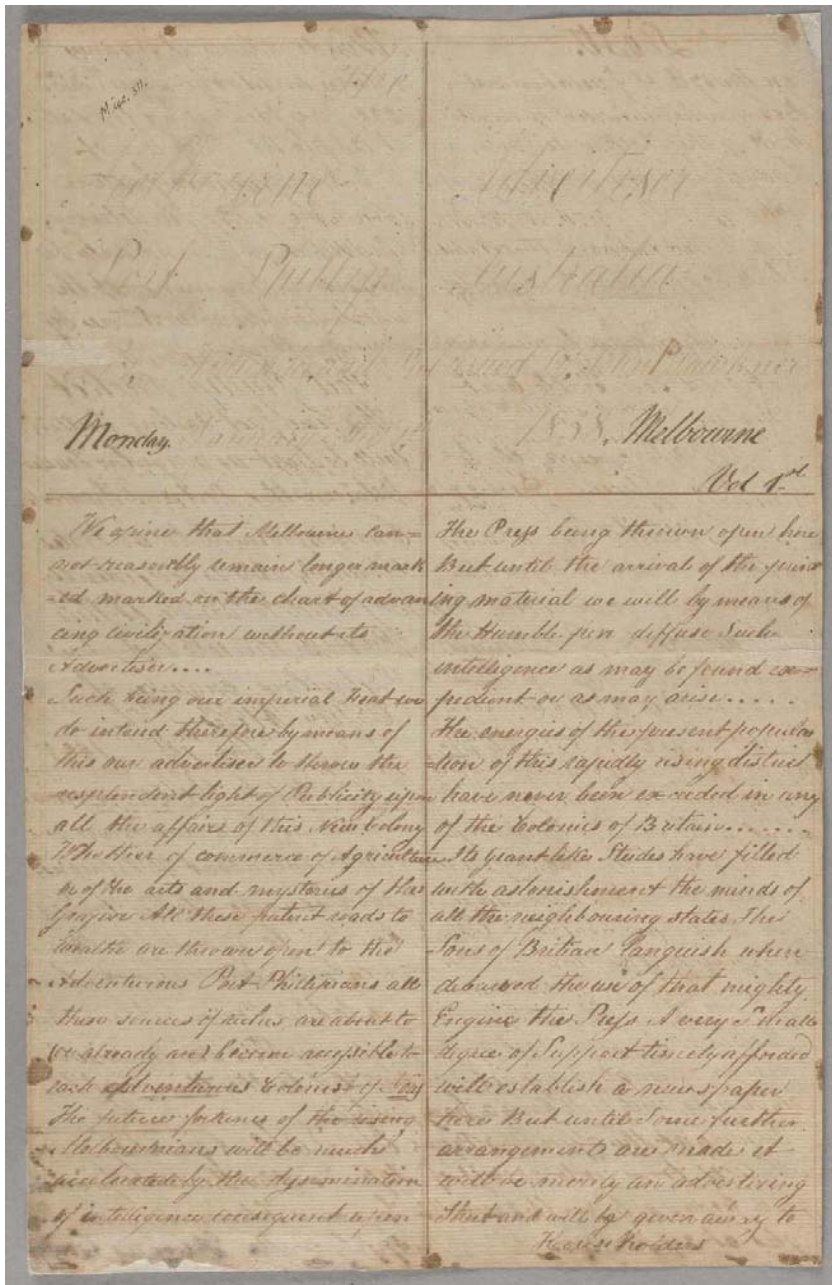 Misc. 511.
Melbourne Advertiser
Port Phillip Australia
Written and Published by John P Fawkner
Monday. January 1838. Melbourne
Vol 1st
We opine that Melbourne can=
not reasonably remain longer mark
=ed marked on the chart of advan
cing civilization without its
Advertiser....
Such being our imperial that we
do intend therefore by means of
this our advertiser to throw the
resplendent light of Publicity upon
all the affairs of this New Colony
Whether of commerce of Agriculture
or of the arts and mysteries of the
Grazier All these patent roads to
wealth are thrown open to the
Adventurous Port Phillipians all
these sources of riches are about to
or already are become accessible to
each adventurous Colonist of
The future fortunes of the rising
Melbournians will be much
accelerated by the dysemination
of intelligence consequent upon
The Press being thrown open here
But until the arrival of the print
ing material we will by means of
the Humble pen diffuse Such
intelligence as may be found ex=
pedient or as may arise.....
The energies of the present popula
=tion of this rapidly rising district
have never been exceeded in any
of the Colonies of Britain.......
Its giantlike Strides have filled
with astonishment the minds of
all the neighbouring states The
Sons of Britian languish when
debarred the use of that mighty
Engine the Press A very Small
degree of Support timely afforded
will establish a newspaper
here But until Some further
arrangements are made it
will be merely an advertising
Sheet and will be given away to
Householders